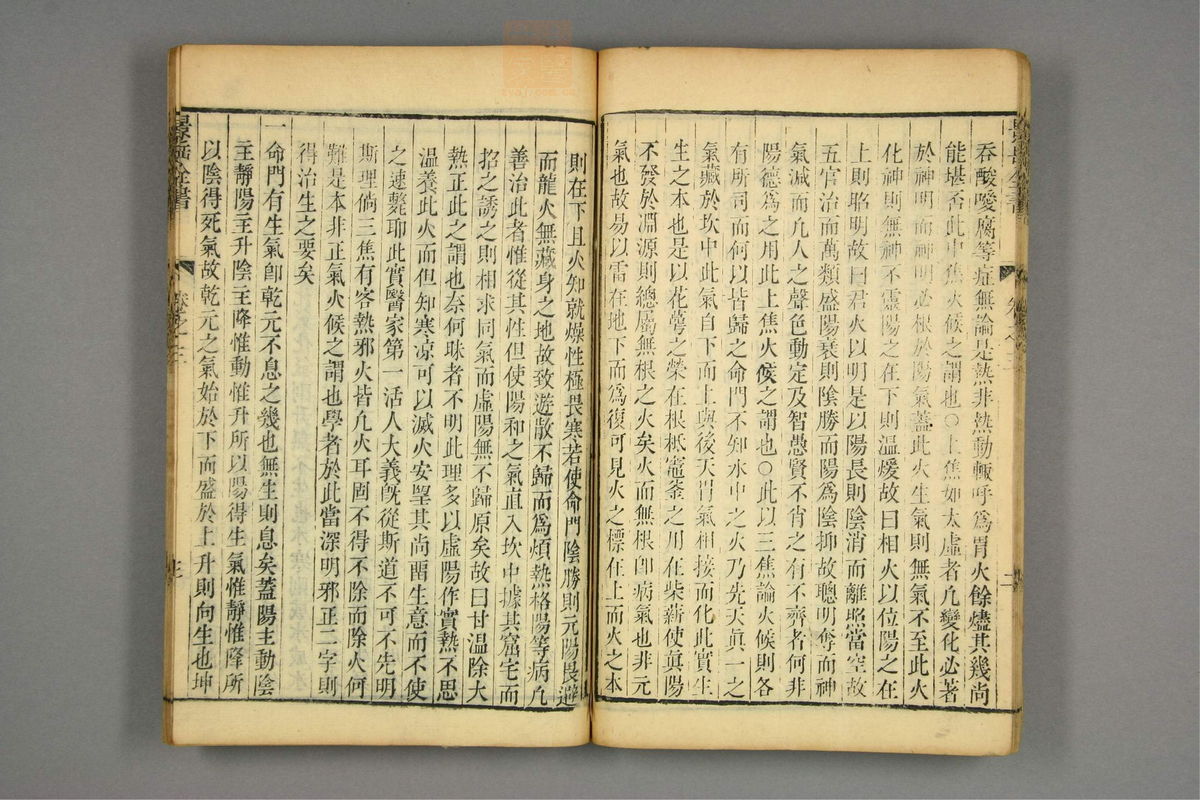 吞酸噯腐等症無論是熱非熱動輒呼為胃火餘燼其幾尚
能堪否此中焦火候之謂也○上焦如太虛者凡變化必著
於神明而神明必根於陽氣蓋此火生氣則無氣不至此火
化神則無神不靈陽之在下則温煖故曰相火以位陽之在
上則昭明故曰君火以明是以陽長則陰消而離照當空故
五官治而萬類盛陽衰則陰勝而陽爲陰抑故聰明奪而神
氣減而凡人之聲色動定及智愚賢不肖之有不齊者何非
陽德爲之用此上焦火候之謂也○此以三焦論火候則各
有所司而何以皆歸之命門不知水中之火乃先天眞一之
氣藏於坎中此氣自下而上與後天胃氣相接而化此實生
生之本也是以花萼之榮在根柢竈釜之用在柴薪使眞陽
不發於淵源則總屬無根之火矣火而無根卽病氣也非元
氣也故易以雷在地下而爲復可見火之標在上而火之本
則在下且火知就燥性極畏寒若使命門陰勝則元陽畏避
而龍火無藏身之地故致遊散不歸而爲煩熱格陽等病凡
善治此者惟從其性但使陽和之氣直入坎中據其窟宅而
招之誘之則相求同氣而虛陽無不歸原矣故曰甘温除大
熱正此之謂也奈何昧者不明此理多以虛陽作實熱不思
温養此火而但知寒凉可以滅火安望其尚留生意而不使
之速斃耶此實醫家第一活人大義旣從斯道不可不先明
斯理倘三焦有客熱邪火皆凡火耳固不得不除而除火何
難是本非正氣火候之謂也學者於此當深明邪正二字則
得治生之要矣
一命門有生氣卽乾元不息之幾也無生則息矣蓋陽主動陰
主靜陽主升陰主降惟動惟升所以陽得生氣惟靜惟降所
以陰得死氣故乾元之氣始於下而盛於上升則向生也坤
景岳全書
卷之三
三